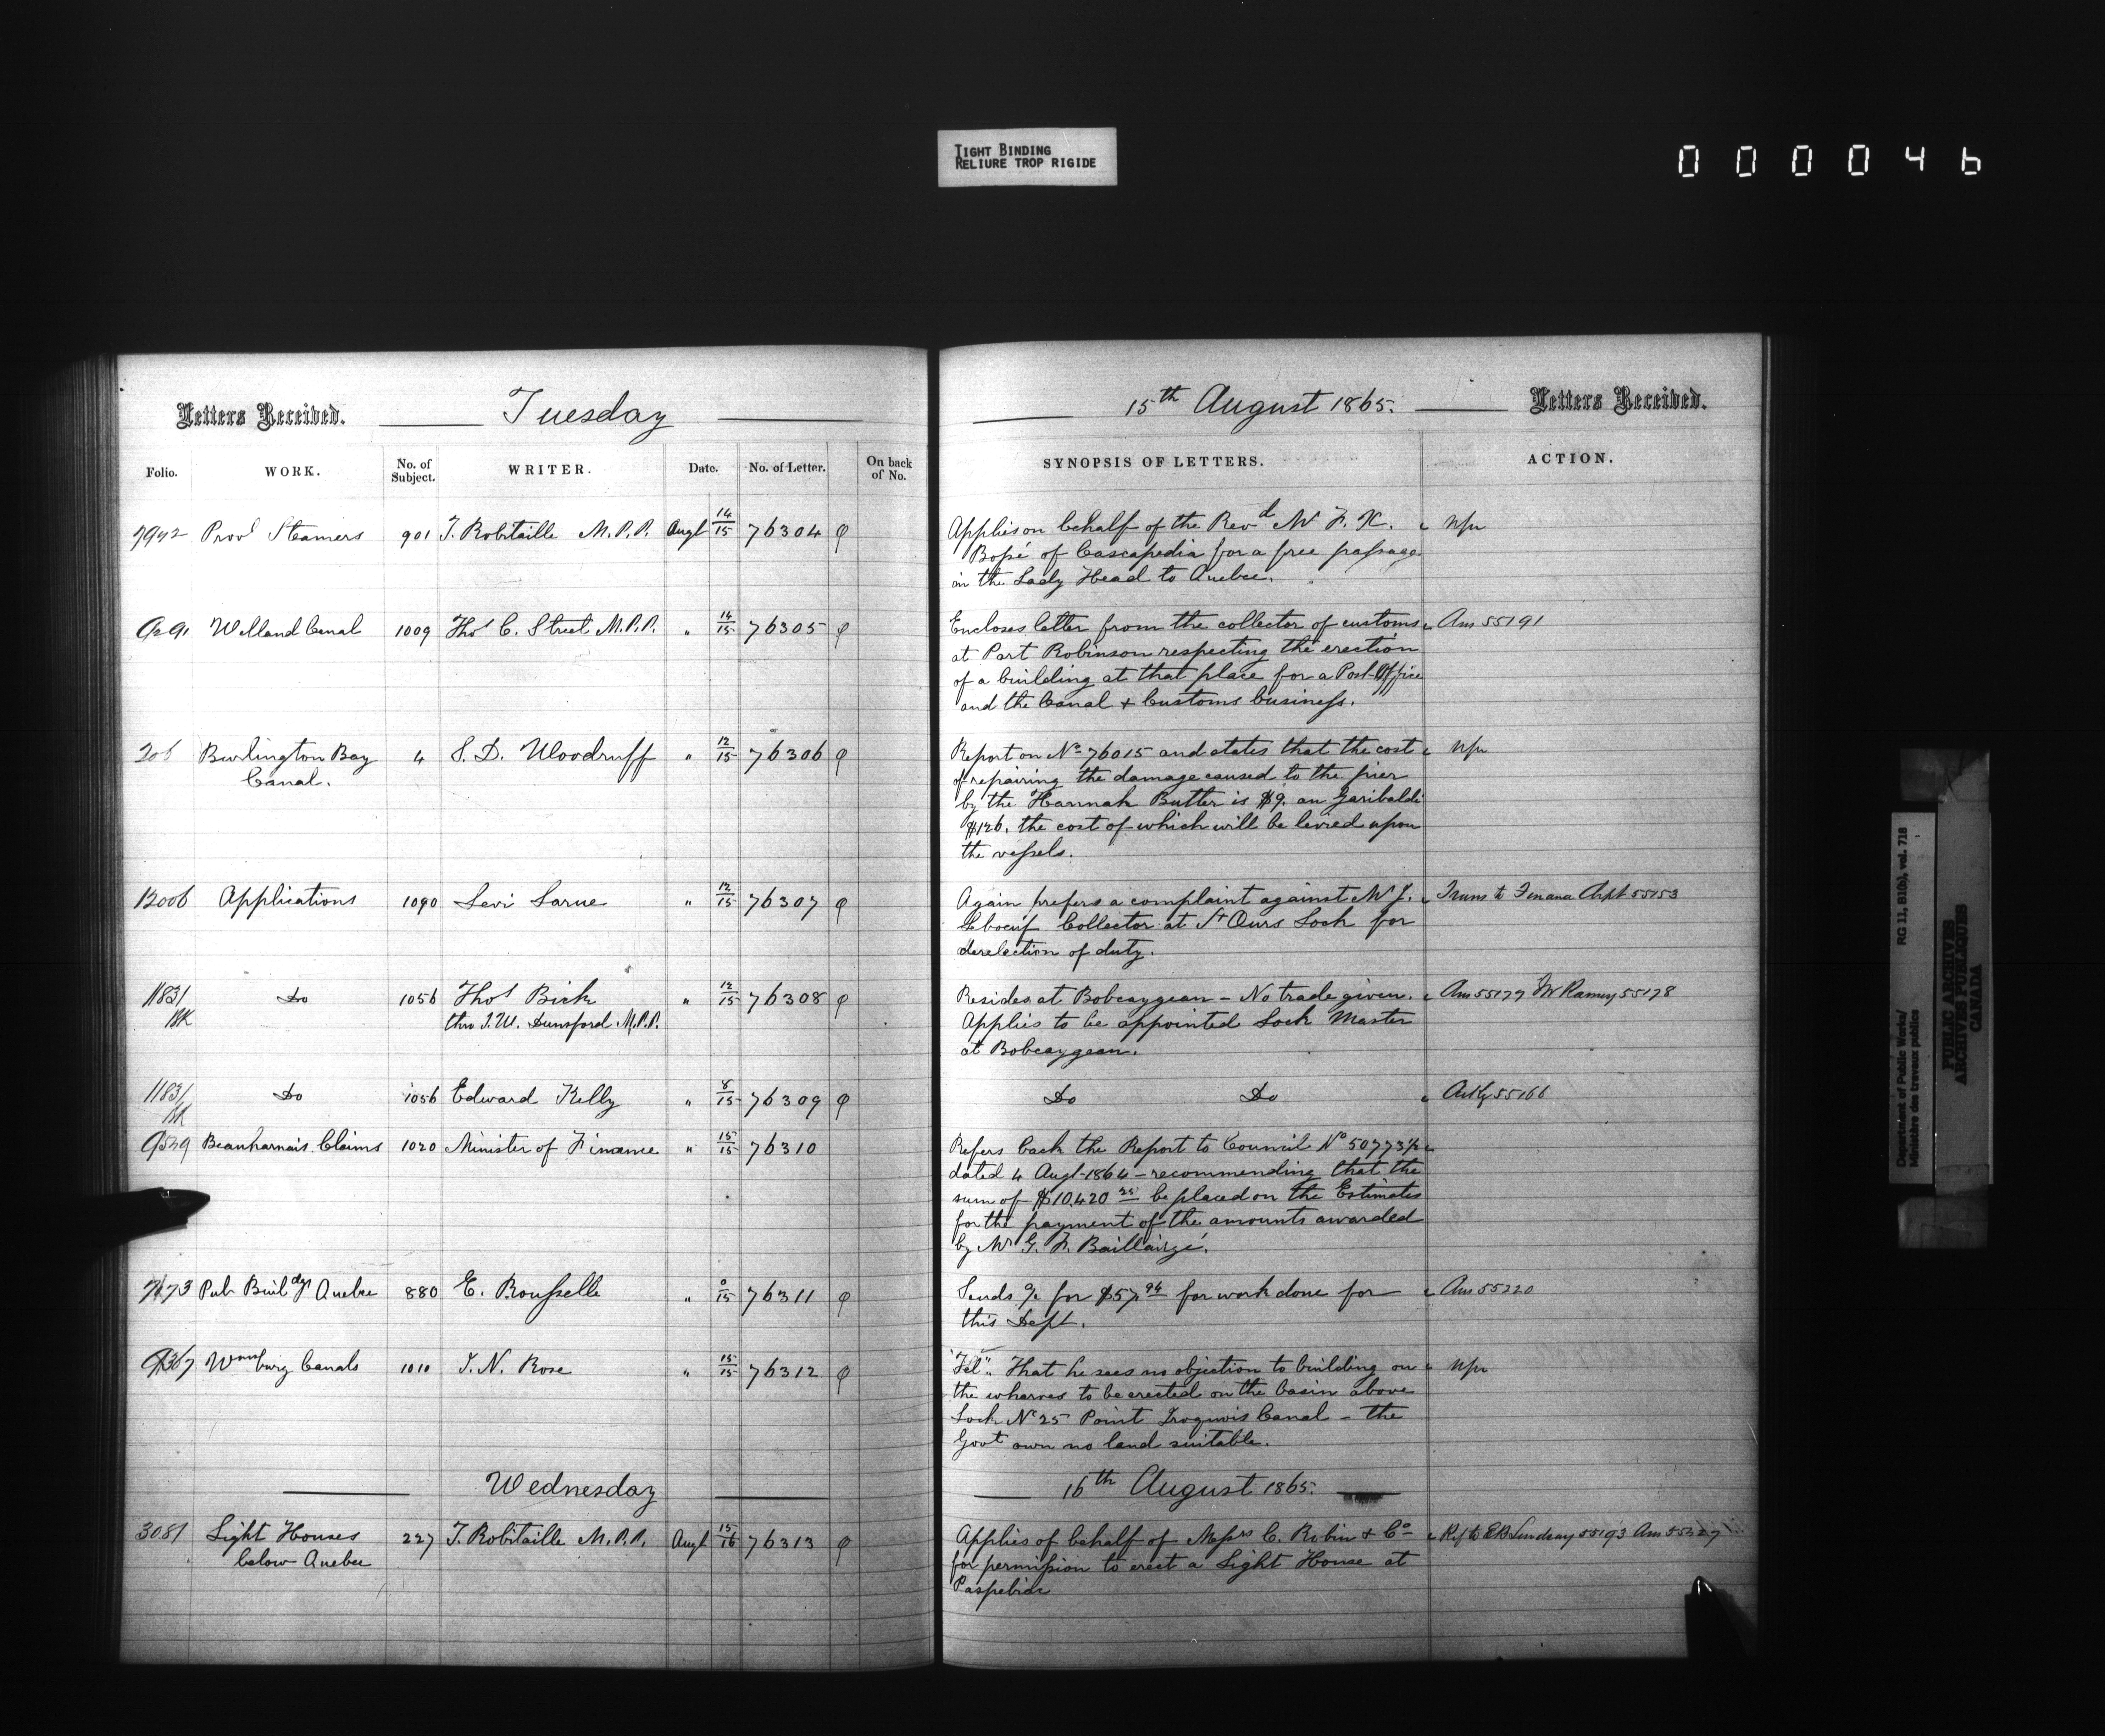 TIGHT BINDING
RELIURE TROP RIGIDE
000046
Letters Received. Tuesday
Folio. WORK. No. of Subject. WRITER. Date. No. of Letter. On back of No.
7942 Provl Steamers 901 T. Robitaille M.P.P. Augt 14/15 76304
Welland Canal 1009 Thos C. Street M.P.P. " 14/15 76305
206 Burlington Bay 4 S. D. Woodruff " 12/15 76306
Canal.
12006 Applications 1090 Levi Larue " 12/15 76307
11831 Do 1056 Thos Bick " 12/15 76308
BK thro J.W. Dunsford M.P.P.
11831 Do 1056 Edward Kelly " 8/15 76309
BK
9529 Beauharnais Claims 1020 Minister of Finance " 15/15 76310
7173 Pub Buildgs Quebec 880 E. Rousselle " 0/15 76311
9367 Wmsburg Canals 1010 J. N. Rose " 15/15 76312
Wednesday
3081 Light Houses 227 T. Robitaille M.P.P. Augt 15/16 76313
below Quebec
15th August 1865. Letters Received.
SYNOPSIS OF LETTERS. ACTION.
Applies on behalf of the Revd Mr F. X.
Bossé of Cascapedia for a free passage
in the Lady Head to Quebec.
Encloses letter from the collector of customs Ans 55191
at Port Robinson respecting the erection
of a building at that place for a Post-Office
and the Canal + Customs business.
Report on No 76015 and states that the cost
of repairing the damage caused to the pier
by the Hannah Butler is $9. an Garibaldi
$126. the cost of which will be levied upon
the vessels.
Again prefers a complaint against Mr J. Trans to Finance Dept 55153
Leboeuf Collector at St Ours Lock for
derelection of duty.
Resides at Bobcaygean – No trade given. Ans 55177 Mr Ranney 55178
Applies to be appointed Lock Master
at Bobcaygean.
Do Do Ackg 55166
Refers back the Report to Council No 50773½
dated 4 Augt 1864 – recommending that the
sum of $10,420 25 be placed on the Estimates
for the payment of the amounts awarded
by Mr G. F. Baillairgé.
Sends a/c for $57.94 for work done for Ans 55220
this Dept.
"Tel". That he sees no objection to building on
the wharves to be erected on the basin above
Lock No 25 Point Iroquois Canal – the
Govt own no land suitable.
16th August 1865.
Applies of behalf of Messrs C. Robin + Co Ref to EB Lindsay 55193 Ans 55327
for permission to erect a Light House at
Paspebiac
Department of Public Works/
Ministère des travaux publics
RG 11, B1(a), vol. 718
PUBLIC ARCHIVES
ARCHIVES PUBLIQUES
CANADA